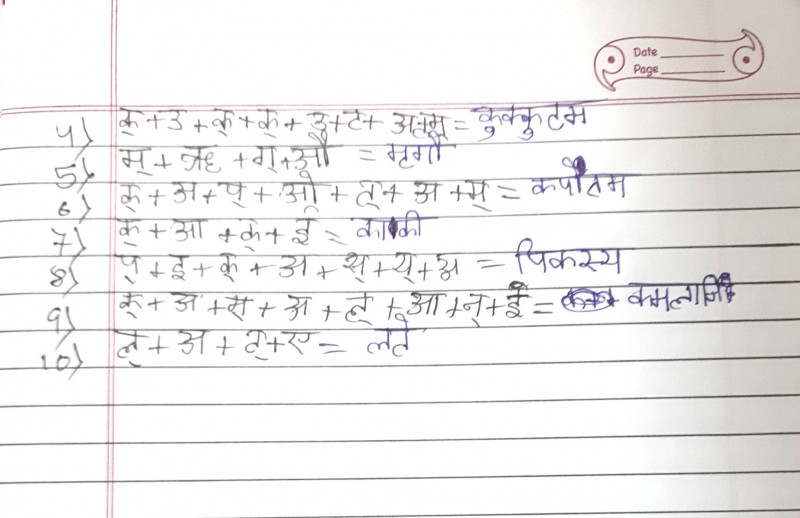 Date
Page
4) क्+उ+क्+क्+उ+ट+अ+म् = कुक्कुटम
5) म्+ऋ+ग्+औ = मृगौ
6) क्+अ+प्+ओ+त्+अ+म् = कपोतम
7) क्+आ+क्+ई = काकी
8) प्+इ+क्+अ+स्+य्+अ = पिकस्य
9) क्+अ+म्+अ+ल्+आ+न्+ई =
10) ल्+अ+त्+ए = लते